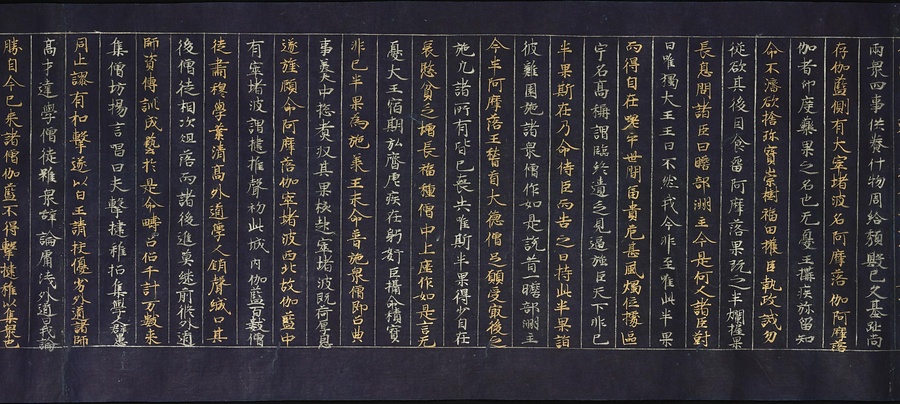 兩眾四事供養什物周給頹毀已久基趾尚
存伽藍側有大窣堵波名阿摩落伽阿摩落
伽者印度藥果之名也无憂王搆疾弥留知
命不濟欲捨珎寶崇樹福田權臣執政誡勿
從欲其後因食留阿摩落果玩之半爛握果
長息問諸臣曰瞻部洲主今是何人諸臣對
曰唯獨大王王曰不然我今非主唯此半果
而得自在嗟乎世間冨貴危甚風燭位據區
宇名高稱謂臨終遺乏見逼強臣天下非己
半果斯在乃命侍臣而告之曰持此半果詣
彼雞園施諸衆僧作如是說昔一瞻部洲主
今半阿摩落王稽首大德僧前願受最後之
施凢諸所有皆已喪失唯斯半果得少自在
哀愍貧乏增長福種僧中上座作如是言无
憂大王宿期弘濟虐疾在躬姧臣擅命積寶
非己半果爲施承王來命普施衆僧即召典
事羹中惣煮収其果核起窣堵波既荷厚恩
遂旌顧命阿摩落伽窣堵波西北故伽藍中
有窣堵波謂揵推聲初此城內伽藍百數僧
徒肅穆學業清高外道學人銷聲緘口其
後僧徒相次殂落而諸後進莫継前修外道
師資傳訓成藝於是命疇召侶千計万數来
集僧坊揚言唱曰夫擊揵稚招集學人群愚
同止謬有扣擊遂以白王請挍優劣外道諸師
高才達學僧徒雖衆辞論膚淺外道曰我論
勝自今已来諸僧伽藍不得擊揵稚以集衆也